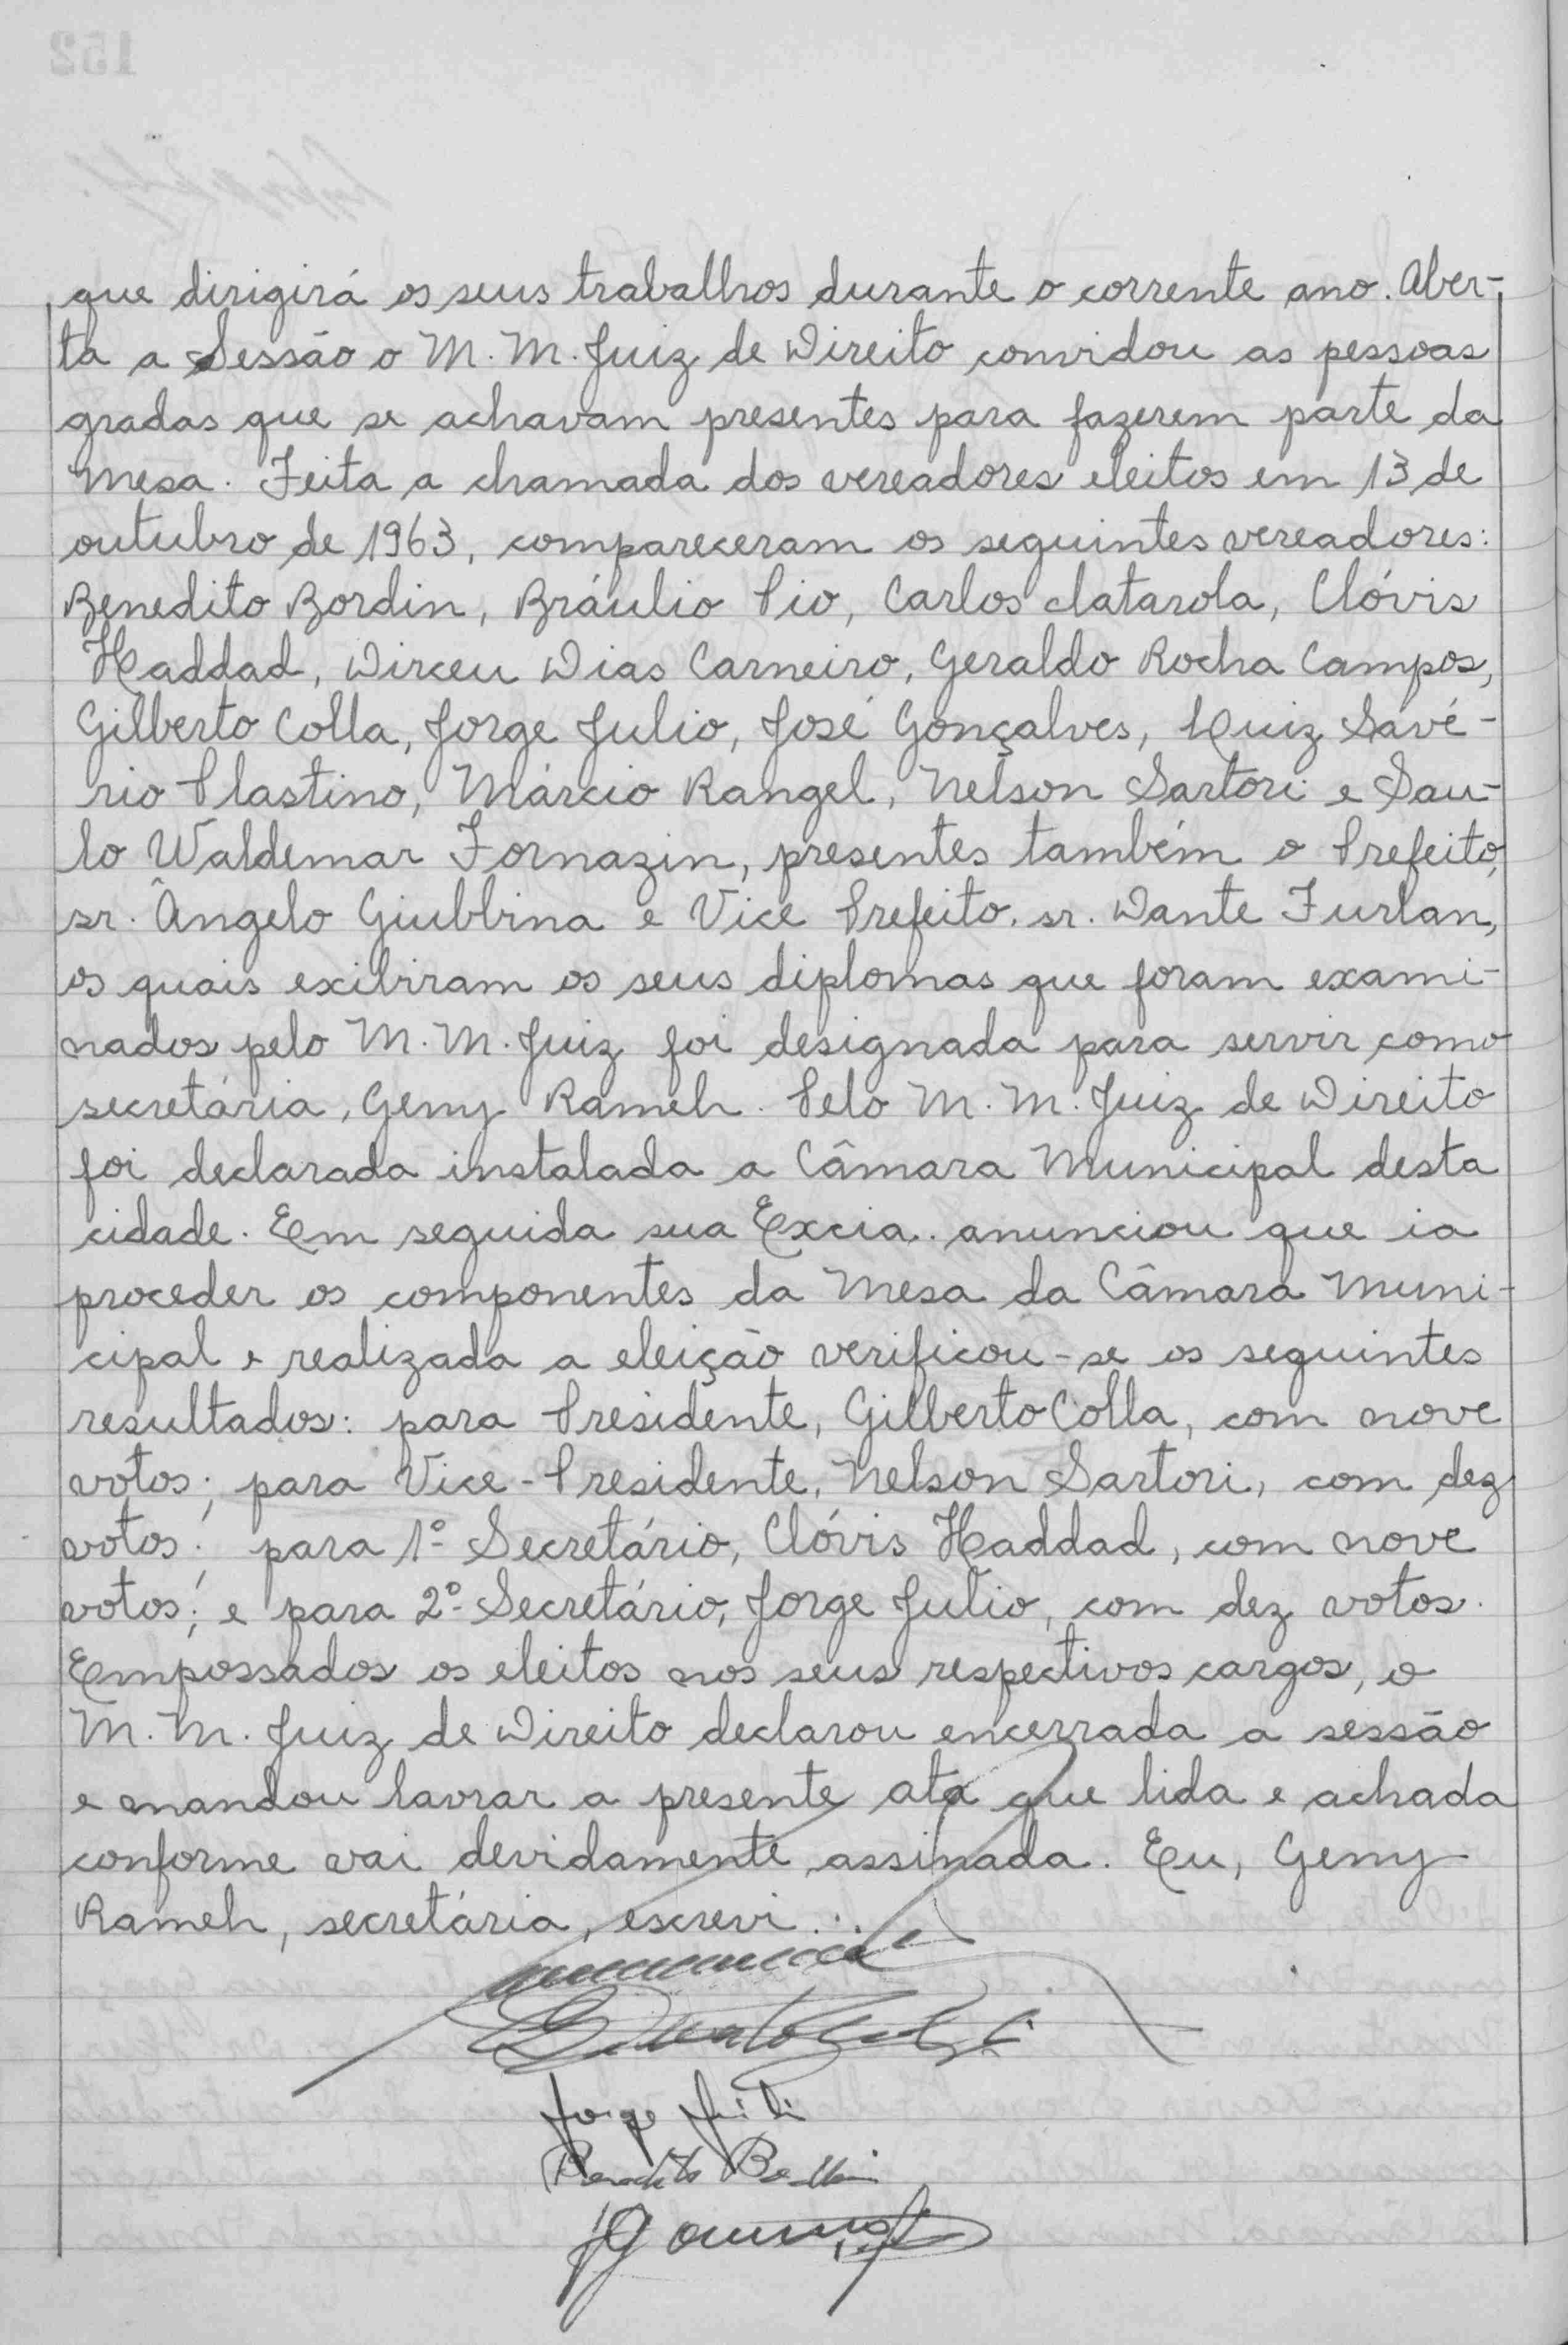 que dirigirá os seus trabalhos durante o corrente ano. Aber-
ta a Sessão o M. M. Juiz de Direito convidou as pessoas
gradas que se achavam presentes para fazerem parte da
Mesa. Feita a chamada dos vereadores eleitos em 13 de
outubro de 1963, compareceram os seguintes vereadores:
Benedito Bordin, Bráulio Pio, Carlos Latarola, Clóvis
Haddad, Dirceu Dias Carneiro, Geraldo Rocha Campos,
Gilberto Colla, Jorge Julio, José Gonçalves, Luiz Savé-
rio Plastino, Márcio Rangel, Nelson Sartori e Sau-
lo Waldemar Fornazin, presentes também o Prefeito,
sr. Ângelo Giubbina e Vice Prefeito. sr. Dante Furlan,
os quais exibiram os seus diplomas que foram exami-
nados pelo M. M. Juiz foi designada para servir como
secretária, Geny Rameh. Pelo M. M. Juiz de Direito
foi declarada instalada a Câmara Municipal desta
cidade. Em seguida sua Excia. anunciou que ia
proceder os componentes da Mesa da Câmara Muni-
cipal e realizada a eleição verificou-se os seguintes
resultados: para Presidente, Gilberto Colla, com nove
votos; para Vice-Presidente, Nelson Sartori, com dez
votos; para 1º Secretário, Clóvis Haddad, com nove
votos; e para 2º Secretário, Jorge Julio, com dez votos.
Empossados os eleitos nos seus respectivos cargos, o
M. M. Juiz de Direito declarou encerrada a sessão
e mandou lavrar a presente ata que lida e achada
conforme vai devidamente assinada. Eu, Geny
Rameh, secretária, escrevi...
Jorge Julio
Benedito Bordin